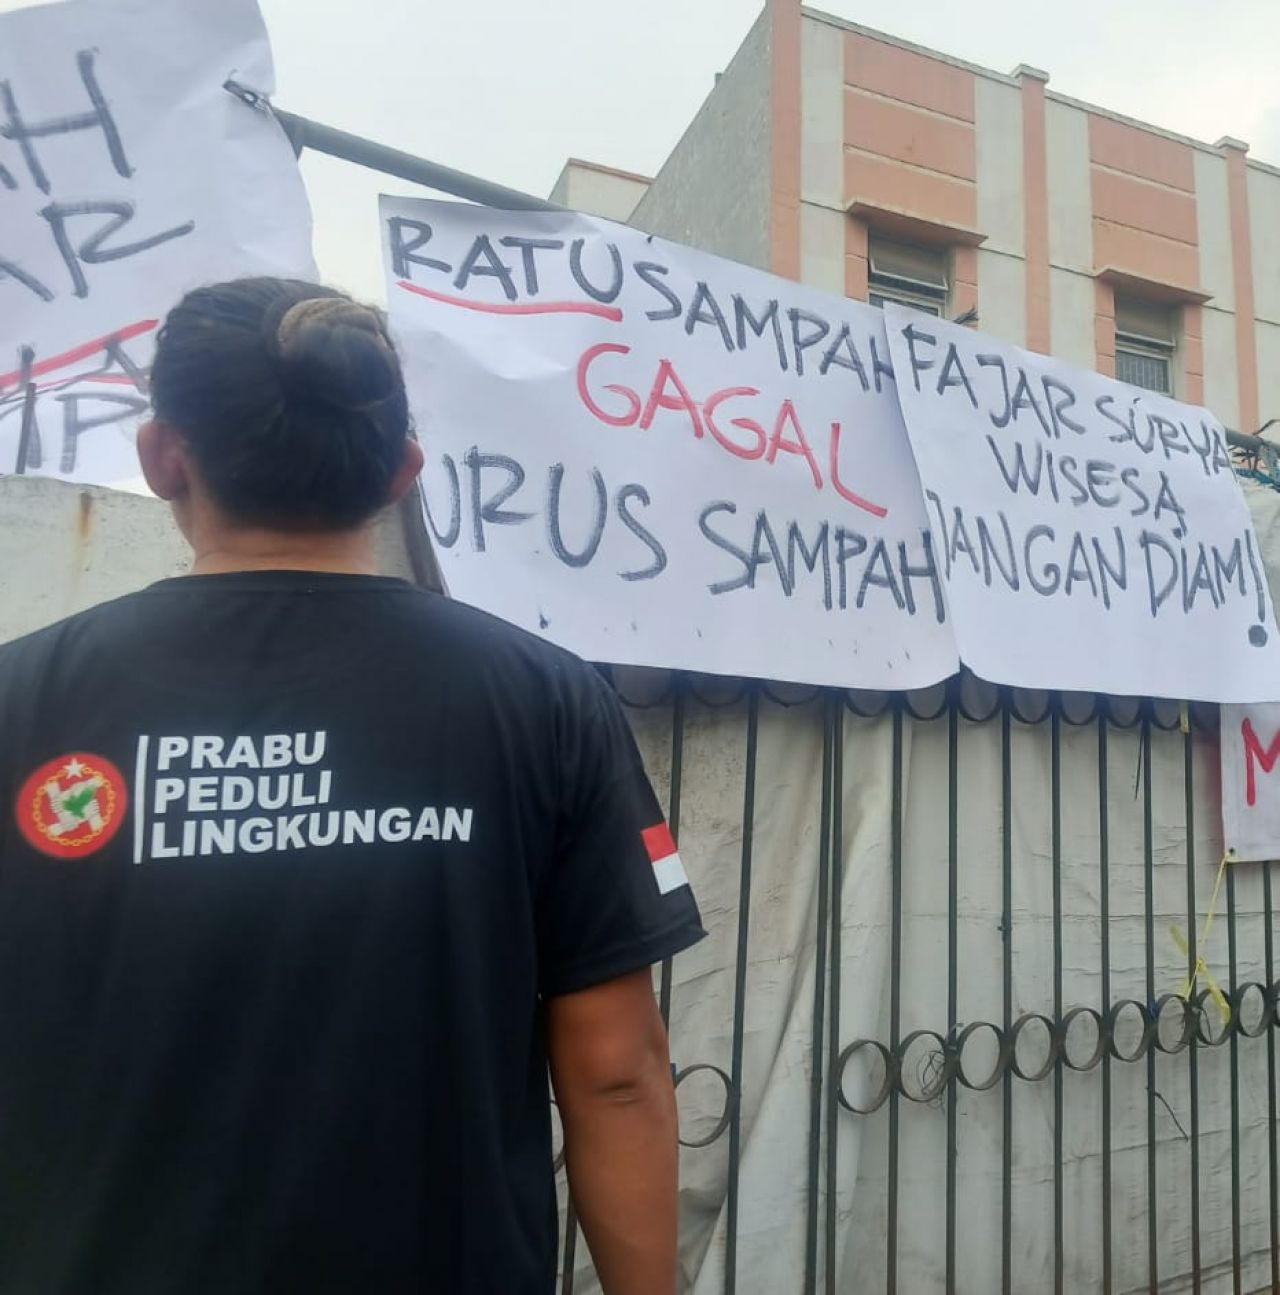 RATU SAMPAH
GAGAL
URUS SAMPAH
FAJAR SURYA
WISESA
JANGAN DIAM!
PRABU
PEDULI
LINGKUNGAN
M